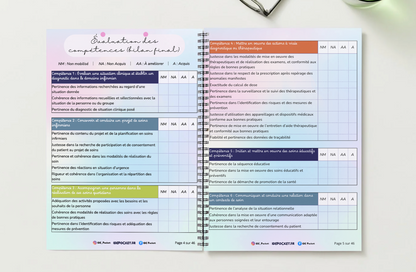 Évaluation des
compétences (bilan final)
NM : Non mobilisé | NA : Non Acquis | AA : À améliorer | A : Acquis
Compétence 1 : Evaluer une situation clinique et établir un
diagnostic dans le domaine infirmier
NM NA AA A
Pertinence des informations recherchées au regard d'une
situation donnée
Cohérence des informations recueillies et sélectionnées avec la
situation de la personne ou du groupe
Pertinence du diagnostic de situation clinique posé
Compétence 2 : Concevoir et conduire un projet de soins
infirmiers
NM NA AA A
Pertinence du contenu du projet et de la planification en soins
infirmiers
Justesse dans la recherche de participation et de consentement
du patient au projet de soins
Pertinence et cohérence dans les modalités de réalisation du
soin
Pertinence des réactions en situation d'urgence
Rigueur et cohérence dans l'organisation et la répartition des
soins
Compétence 3 : Accompagner une personne dans la
réalisation de ses soins quotidiens
NM NA AA A
Adéquation des activités proposées avec les besoins et les
souhaits de la personne
Cohérence des modalités de réalisation des soins avec les règles
de bonnes pratiques
Pertinence dans l'identification des risques et adéquation des
mesures de prévention
Page 5 sur 46
Compétence 4 : Mettre en œuvre des actions à visée
diagnostique ou thérapeutique
NM NA AA A
Justesse dans les modalités de mise en œuvre des
thérapeutiques et de réalisation des examens, et conformité aux
règles de bonnes pratiques
Justesse dans le respect de la prescription après repérage des
anomalies manifestes
Exactitude du calcul de dose
Pertinence dans la surveillance et le suivi des thérapeutiques et
des examens
Pertinence dans l'identification des risques et des mesures de
prévention
Justesse d'utilisation des appareillages et dispositifs médicaux
conforme aux bonnes pratiques
Pertinence de mise en œuvre de l'entretien d'aide thérapeutique
et conformité aux bonnes pratiques
Fiabilité et pertinence des données de traçabilité
Compétence 5 : Initier et mettre en œuvre des soins éducatifs
et préventifs
NM NA AA A
Pertinence de la séquence éducative
Pertinence dans la mise en œuvre des soins éducatifs et
préventifs
Pertinence de la démarche de promotion de la santé
Compétence 6 : Communiquer et conduire une relation dans
un contexte de soins
NM NA AA A
Pertinence de l'analyse de la situation relationnelle
Cohérence dans la mise en œuvre d'une communication adaptée
aux personnes soignées et leur entourage
Justesse dans la recherche de consentement du patient
Page 6 sur 46